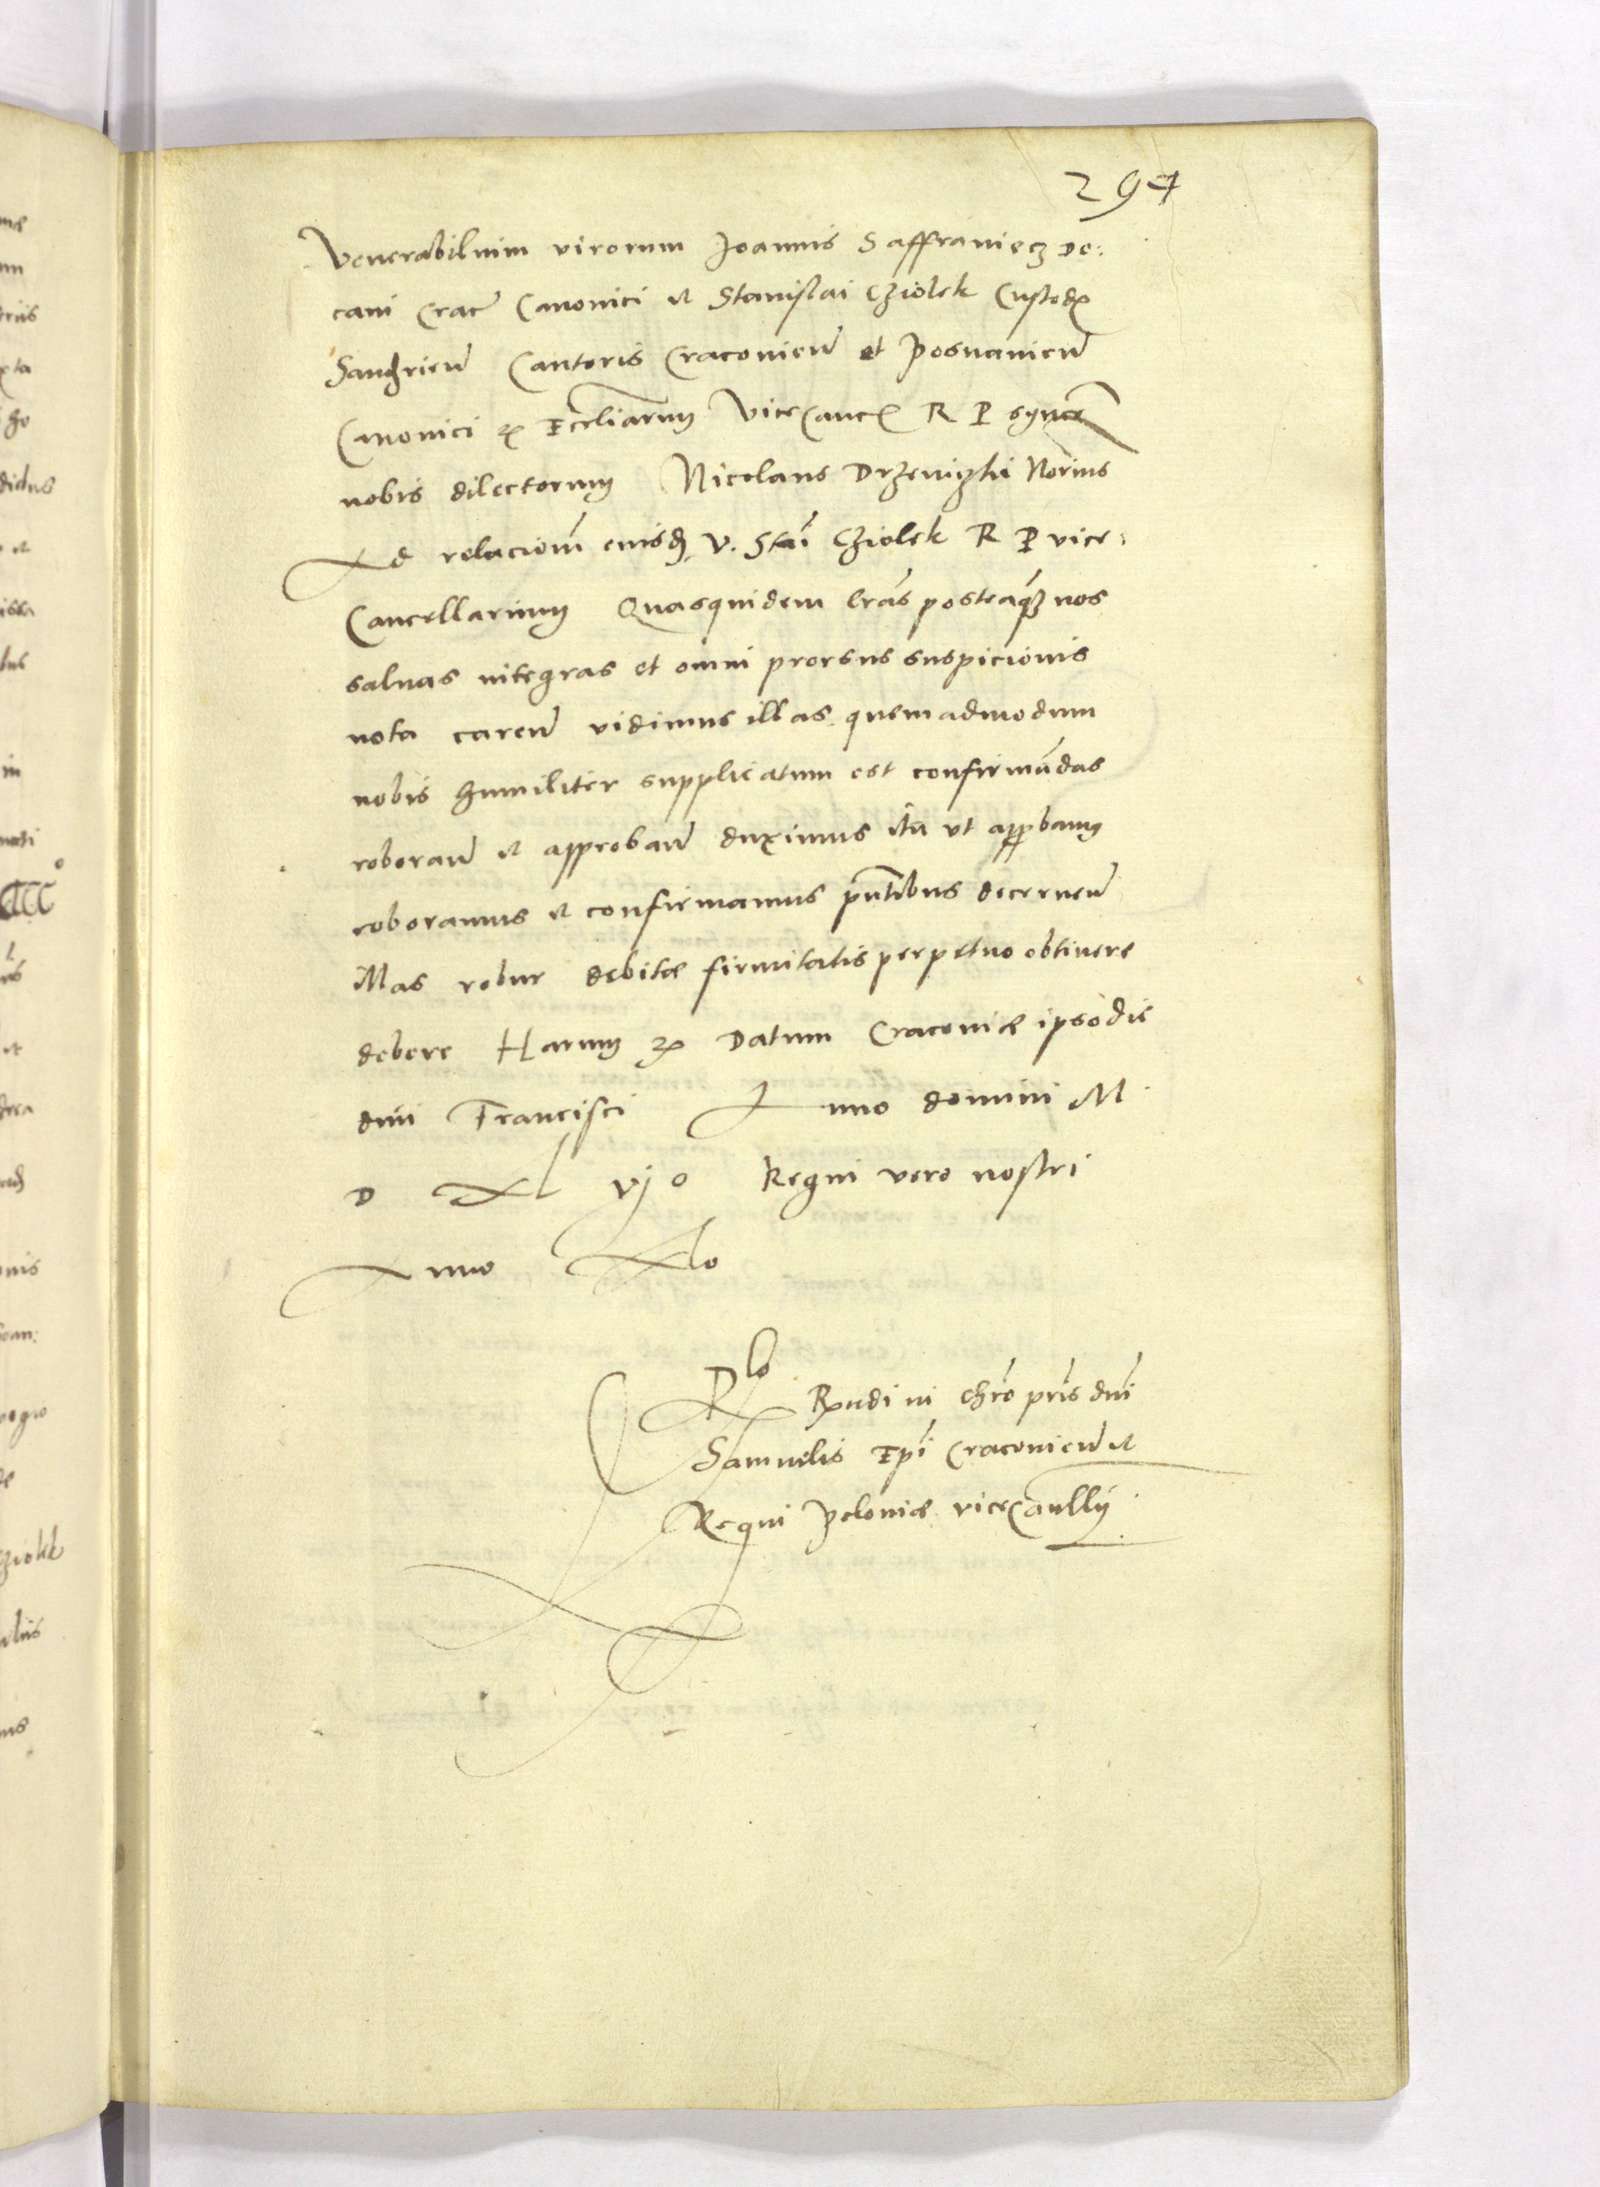 294
Venerabilium virorum Joannis Saffraniecz De:
cani Crac Canonici et Stanislai Cziolek Custodis
Sandrien Cantoris Cracovien et Posnanien
Canonici Eccliarum ViceCanc R P syncer
nobis dilectorum Nicolaus Drzewiczki Norius
Ad relacionem eiusd V. Stai Cziolek R P vice:
Cancellarium Quasquidem lras posteaq nos
saluas integras et omni prorsus suspicionis
nota caren vidimus illas quemadmodum
nobis humiliter supplicatum est confirmadas
roboran et approban duximus ita ut approbam
roboramus et confirmamus pntibus decernen
illas robur debitæ firmitatis perpetuo obtinere
debere Harum Datum Cracoviæ ipso die
divi Francisci Anno domini M
D Xl vj o Regni vero nostri
Anno Xlo
Rlo Rndi in Chro pris dni
Samuelis Epi Cracovien et
Regni Poloniæ viceCancllrij